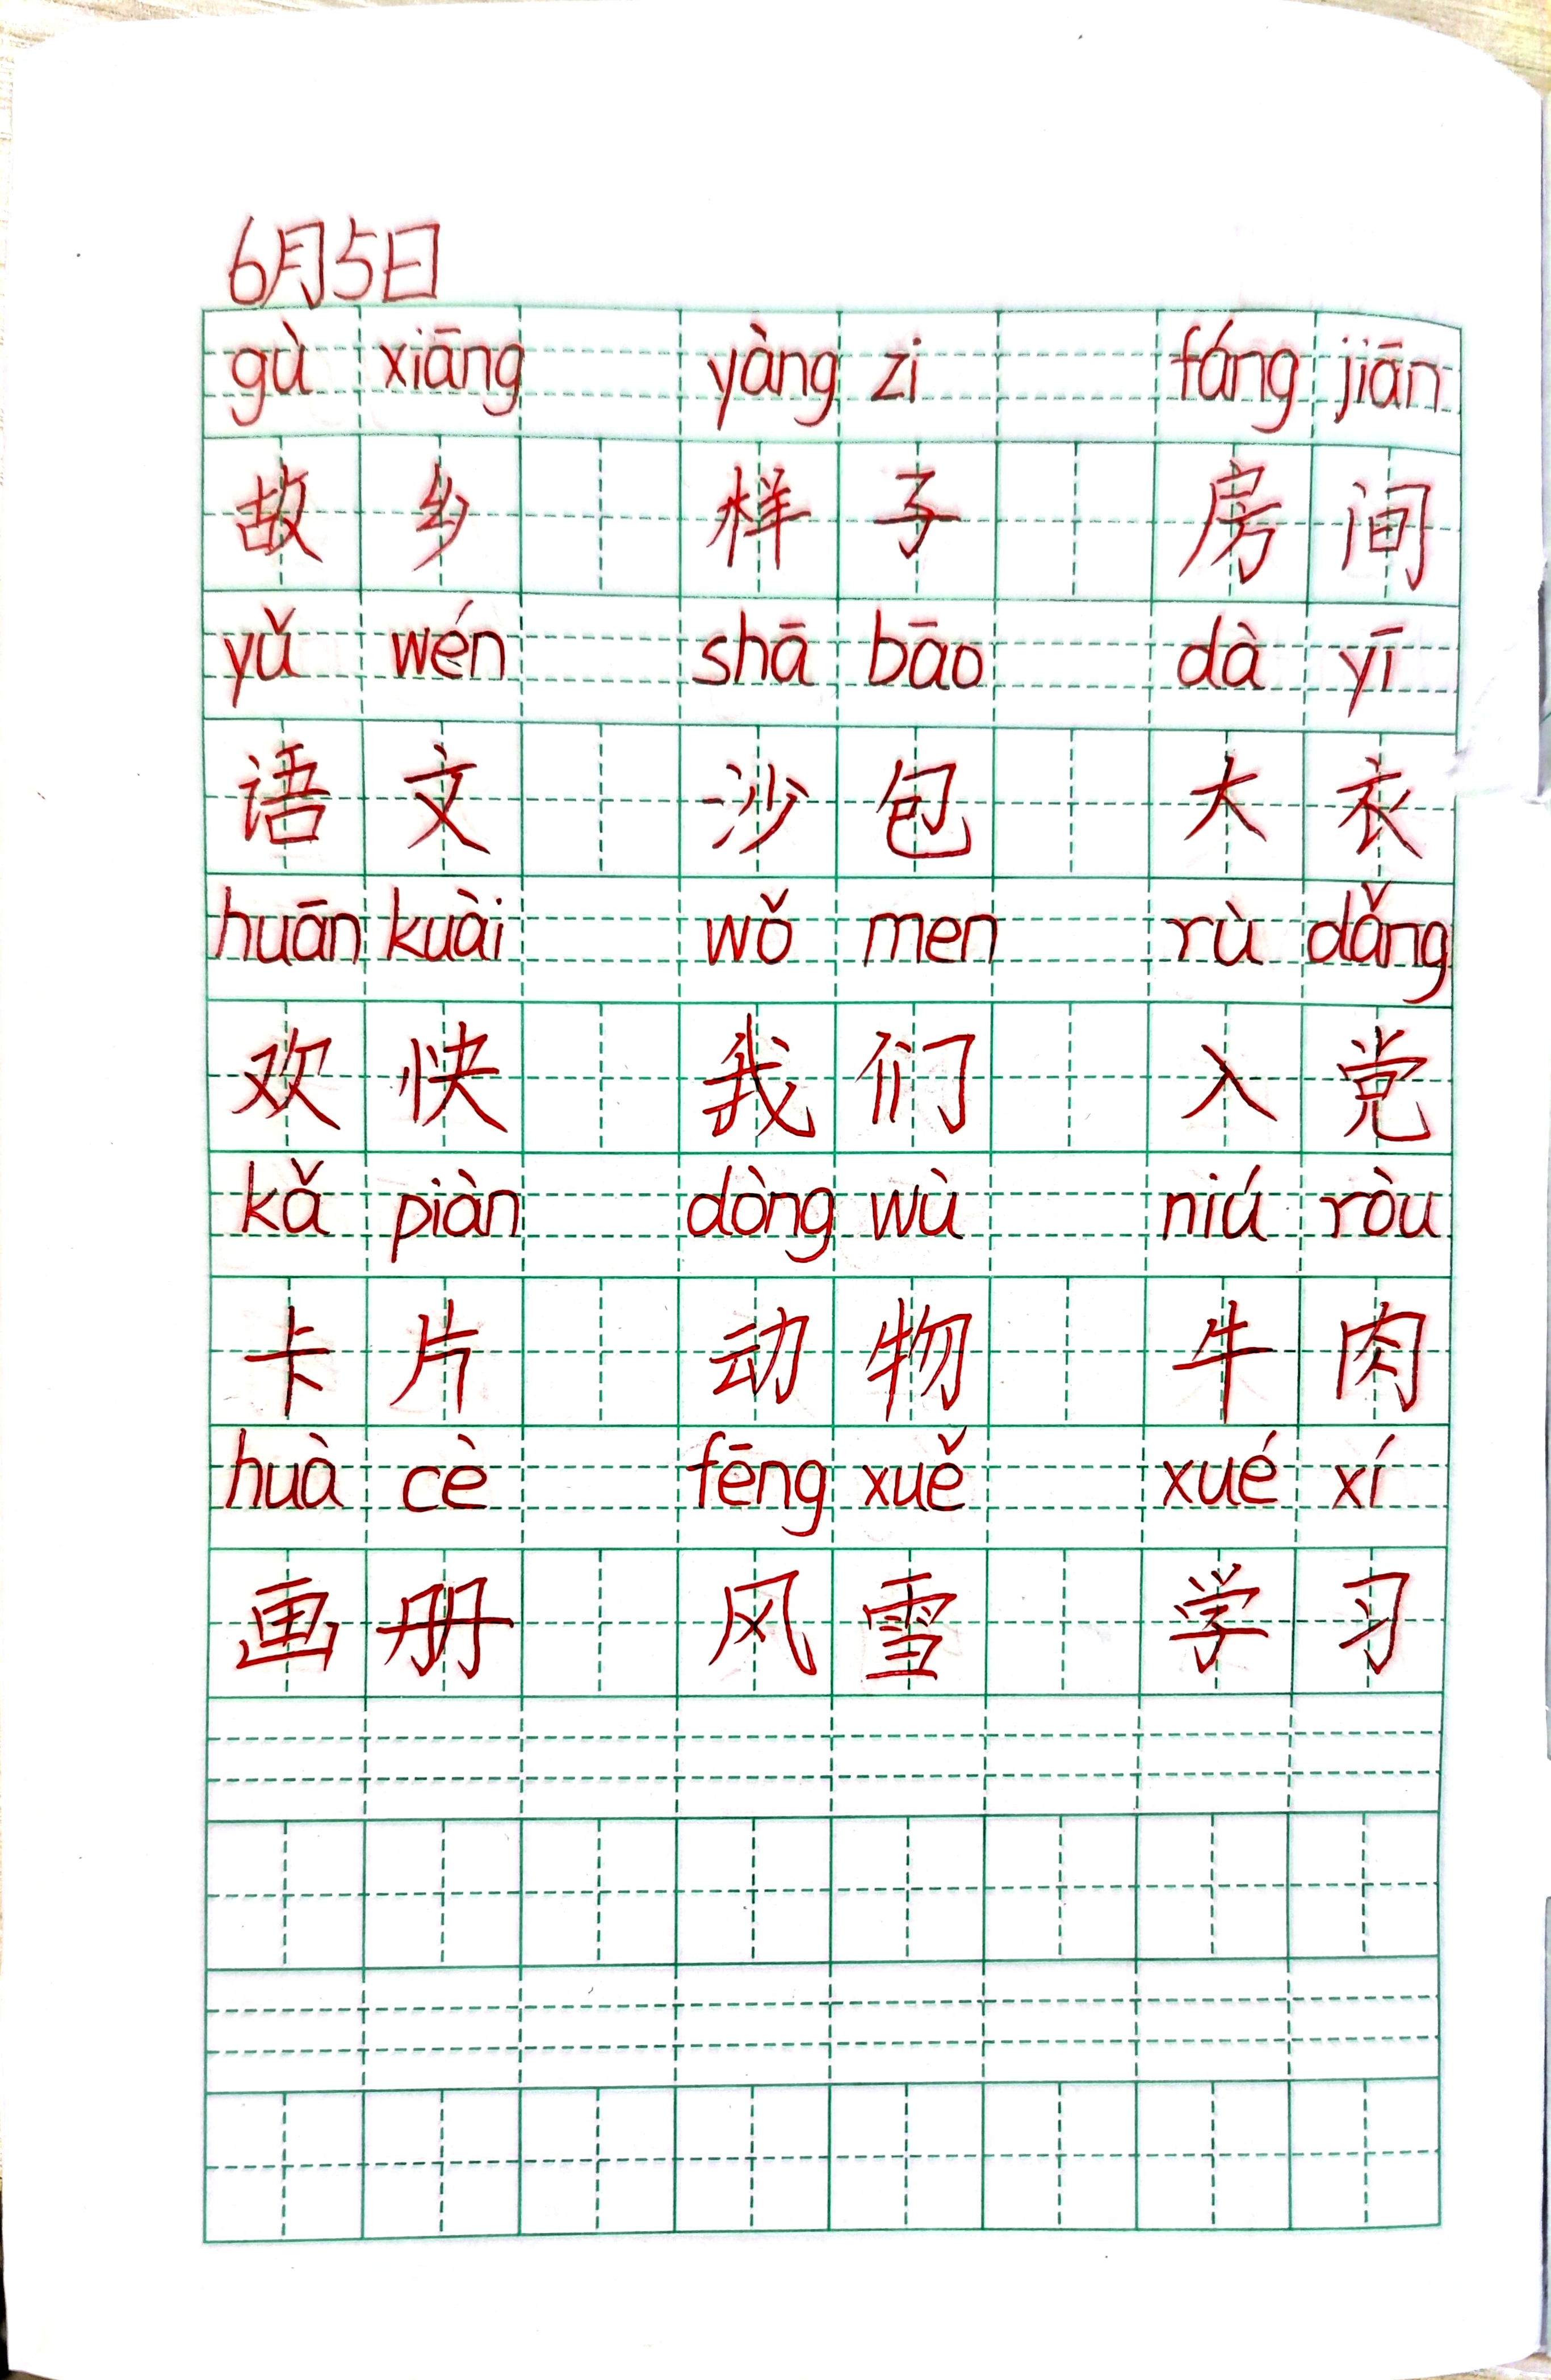 6月5日
gù xiāng yàng zi fáng jiān
故乡 样子 房间
yǔ wén shā bāo dà yī
语文 沙包 大衣
huān kuài wǒ men rù dǎng
欢快 我们 入党
kǎ piàn dòng wù niú ròu
卡片 动物 牛肉
huà cè fēng xuě xué xí
画册 风雪 学习